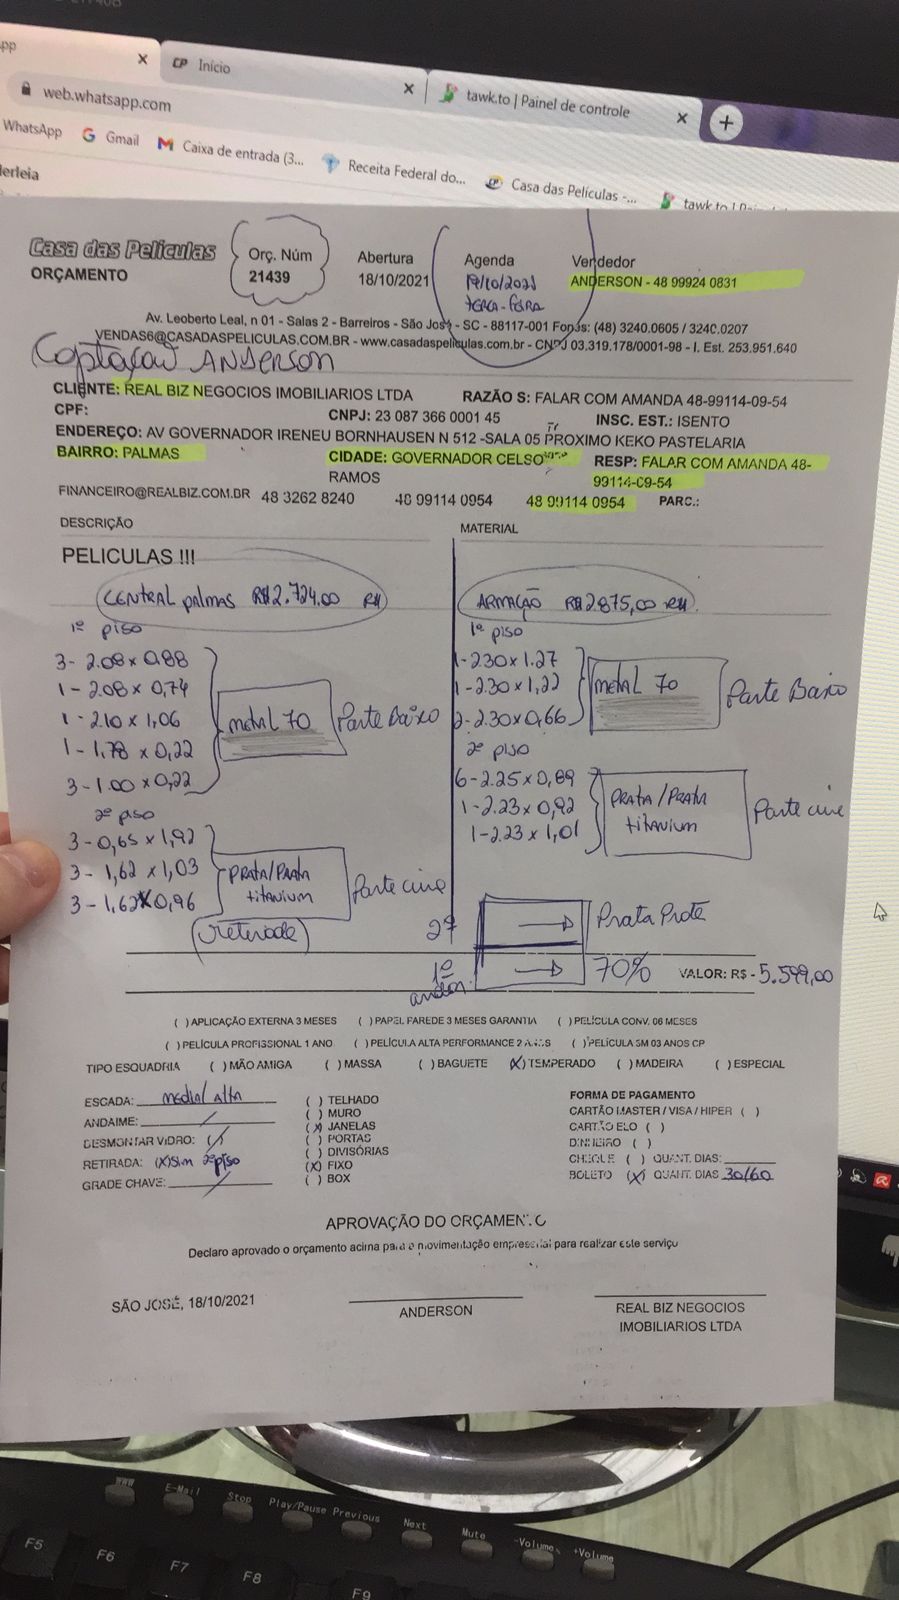 × CP Início × tawk.to | Painel de controle × +
web.whatsapp.com
WhatsApp Gmail Caixa de entrada (3... Receita Federal do... Casa das Películas -... tawk.to
Casa das Películas
ORÇAMENTO
Orç. Núm
21439
Abertura
18/10/2021
Agenda
19/10/2021
terça-feira
Vendedor
ANDERSON - 48 99924 0831
Av. Leoberto Leal, n 01 - Salas 2 - Barreiros - São José - SC - 88117-001 Fonas: (48) 3240.0605 / 3240.0207
VENDAS6@CASADASPELICULAS.COM.BR - www.casadaspeliculas.com.br - CNPJ 03.319.178/0001-98 - I. Est. 253.951.640
Captação ANDERSON
CLIENTE: REAL BIZ NEGOCIOS IMOBILIARIOS LTDA RAZÃO S: FALAR COM AMANDA 48-99114-09-54
CPF: CNPJ: 23 087 366 0001 45 INSC. EST.: ISENTO
ENDEREÇO: AV GOVERNADOR IRENEU BORNHAUSEN N 512 -SALA 05 PROXIMO KEKO PASTELARIA
BAIRRO: PALMAS CIDADE: GOVERNADOR CELSO RESP: FALAR COM AMANDA 48-
RAMOS 99114-09-54
FINANCEIRO@REALBIZ.COM.BR 48 3262 8240 48 99114 0954 48 99114 0954 PARC.:
DESCRIÇÃO MATERIAL
PELICULAS !!!
CENTRAL palmas R$2.724.00
1º piso
3- 2.08 x 0,88
1 - 2.08 x 0,74
1 - 2.10 x 1,06
1 - 1,78 x 0,22
3 - 1.00 x 0,22
metal 70 Parte Baixo
2º piso
3 - 0,65 x 1,92
3 - 1,62 x 1,03
3 - 1,62 x 0,96
PRATA/PRATA
titanium
Parte cine
ARMAÇÃO R$2.875,00
1º piso
1 - 2.30 x 1.27
1 - 2.30 x 1,22
2 - 2.30 x 0,66
metal 70 Parte Baixo
2º piso
6 - 2.25 x 0,89
1 - 2.23 x 0,92
1 - 2.23 x 1,01
PRATA/PRATA
titanium
Parte cine
2º → Prata Prata
1º → 70% VALOR: R$ - 5.599,00
andar
( ) APLICAÇÃO EXTERNA 3 MESES ( ) PAPEL FAREDE 3 MESES GARANTIA ( ) PELÍCULA CONV. 06 MESES
( ) PELÍCULA PROFISSIONAL 1 ANO ( ) PELÍCULA ALTA PERFORMANCE 2 ANOS ( ) PELÍCULA 3M 03 ANOS CP
TIPO ESQUADRIA ( ) MÃO AMIGA ( ) MASSA ( ) BAGUETE (X) TEMPERADO ( ) MADEIRA ( ) ESPECIAL
ESCADA: media/alta
ANDAIME:
DESMONTAR VIDRO: ( )
RETIRADA: (X) Sim 2º piso
GRADE CHAVE:
( ) TELHADO
( ) MURO
(X) JANELAS
( ) PORTAS
( ) DIVISÓRIAS
(X) FIXO
( ) BOX
FORMA DE PAGAMENTO
CARTÃO MASTER / VISA / HIPER ( )
CARTÃO ELO ( )
DINHEIRO ( )
CHEQUE ( ) QUANT. DIAS:
BOLETO (X) QUANT. DIAS 30/60
APROVAÇÃO DO ORÇAMENTO
Declaro aprovado o orçamento acima para o movimentação empresarial para realizar este serviço
SÃO JOSÉ, 18/10/2021
ANDERSON
REAL BIZ NEGOCIOS
IMOBILIARIOS LTDA
WWW E-Mail Stop Play/Pause Previous Next Mute -Volume +Volume
F5 F6 F7 F8 F9